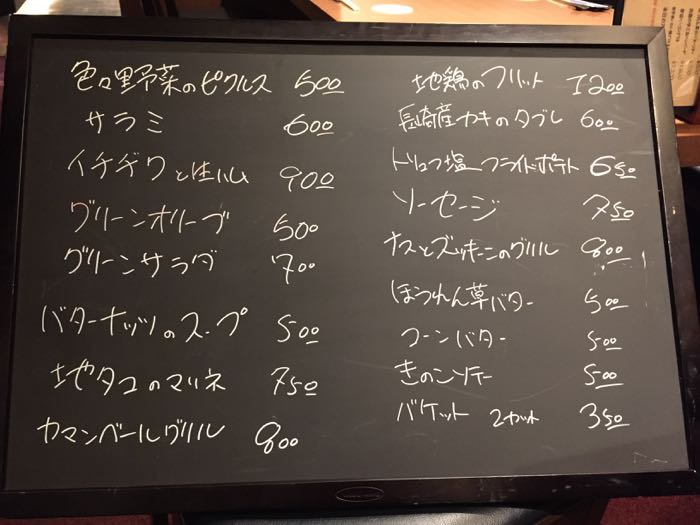 色々野菜のピクルス 500
サラミ 600
イチヂクと生ハム 900
グリーンオリーブ 500
グリーンサラダ 700
バターナッツのスープ 500
地タコのマリネ 750
カマンベールグリル 800
地鶏のフリット 1200
長崎産カキのタブレ 600
トリュフ塩フライドポテト 650
ソーセージ 750
ナスとズッキーニのグリル 800
ほうれん草バター 500
コーンバター 500
きのこソテー 500
バケット 2カット 350